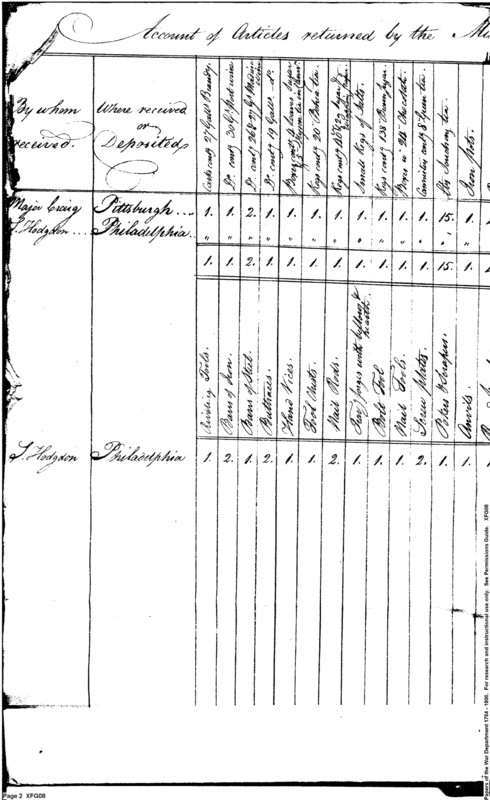 Account of Articles returned by the
By whom received.
Where received or Deposited
Casks contg 27 Galls Brandy
Do contg 30 Gs Port wine
Do contg 19 Galls Do
Kegs contg 20 Bohea tea
Small Kegs of
Kegs contg 138
Boxes
Chocolate
Cannister contg 8 Green tea
lbs Souchong tea.
Iron pots.
Major Craig Pittsburgh ... 1. 1. 2. 1. 1. 1. 1. 1. 1. 1. 1. 15. 1.
S. Hodgdon ... Philadelphia .. " " " " " " " " " " " " "
1. 1. 2. 1. 1. 1. 1. 1. 1. 1. 1. 15. 1.
Tools.
Barrs of Iron.
Barrs of Steel
Buttrices
Hand Vices.
Tool Chests.
Nail Rods.
forges with bellows & hearth
Bolt Tool
Nail Tools.
Screw plates.
& Scrapers.
Anvils.
S. Hodgdon Philadelphia 1. 2. 1. 2. 1. 1. 2. 1. 1. 1. 2. 1. 1.
Page 2 XFG08
Papers of the War Department 1784 - 1800. For research and instructional use only. See Permissions Guide. XFG08